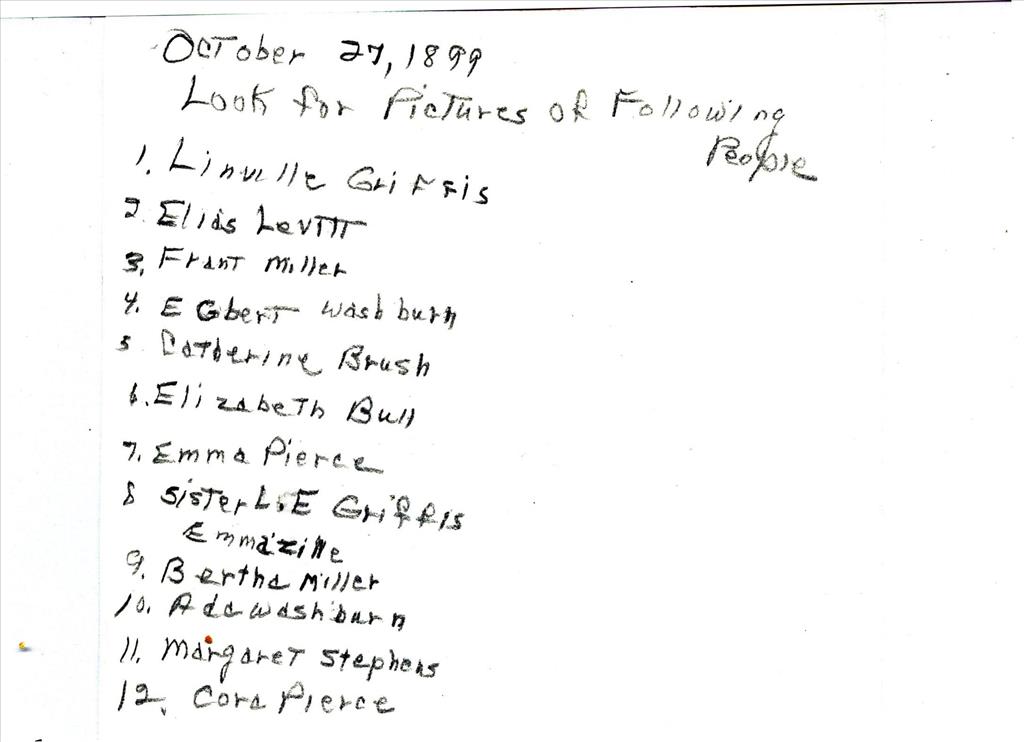 October 27, 1899
Look for Pictures of Following
People
1. Linville Griffis
2. Elias Levitt
3. Frant Miller
4. Egbert Washburn
5 Catherine Brush
6. Elizabeth Bull
7. Emma Pierce
8 Sister L.E Griffis
Emmazille
9. Bertha Miller
10. Ada Washburn
11. Margaret Stephens
12. Cora Pierce